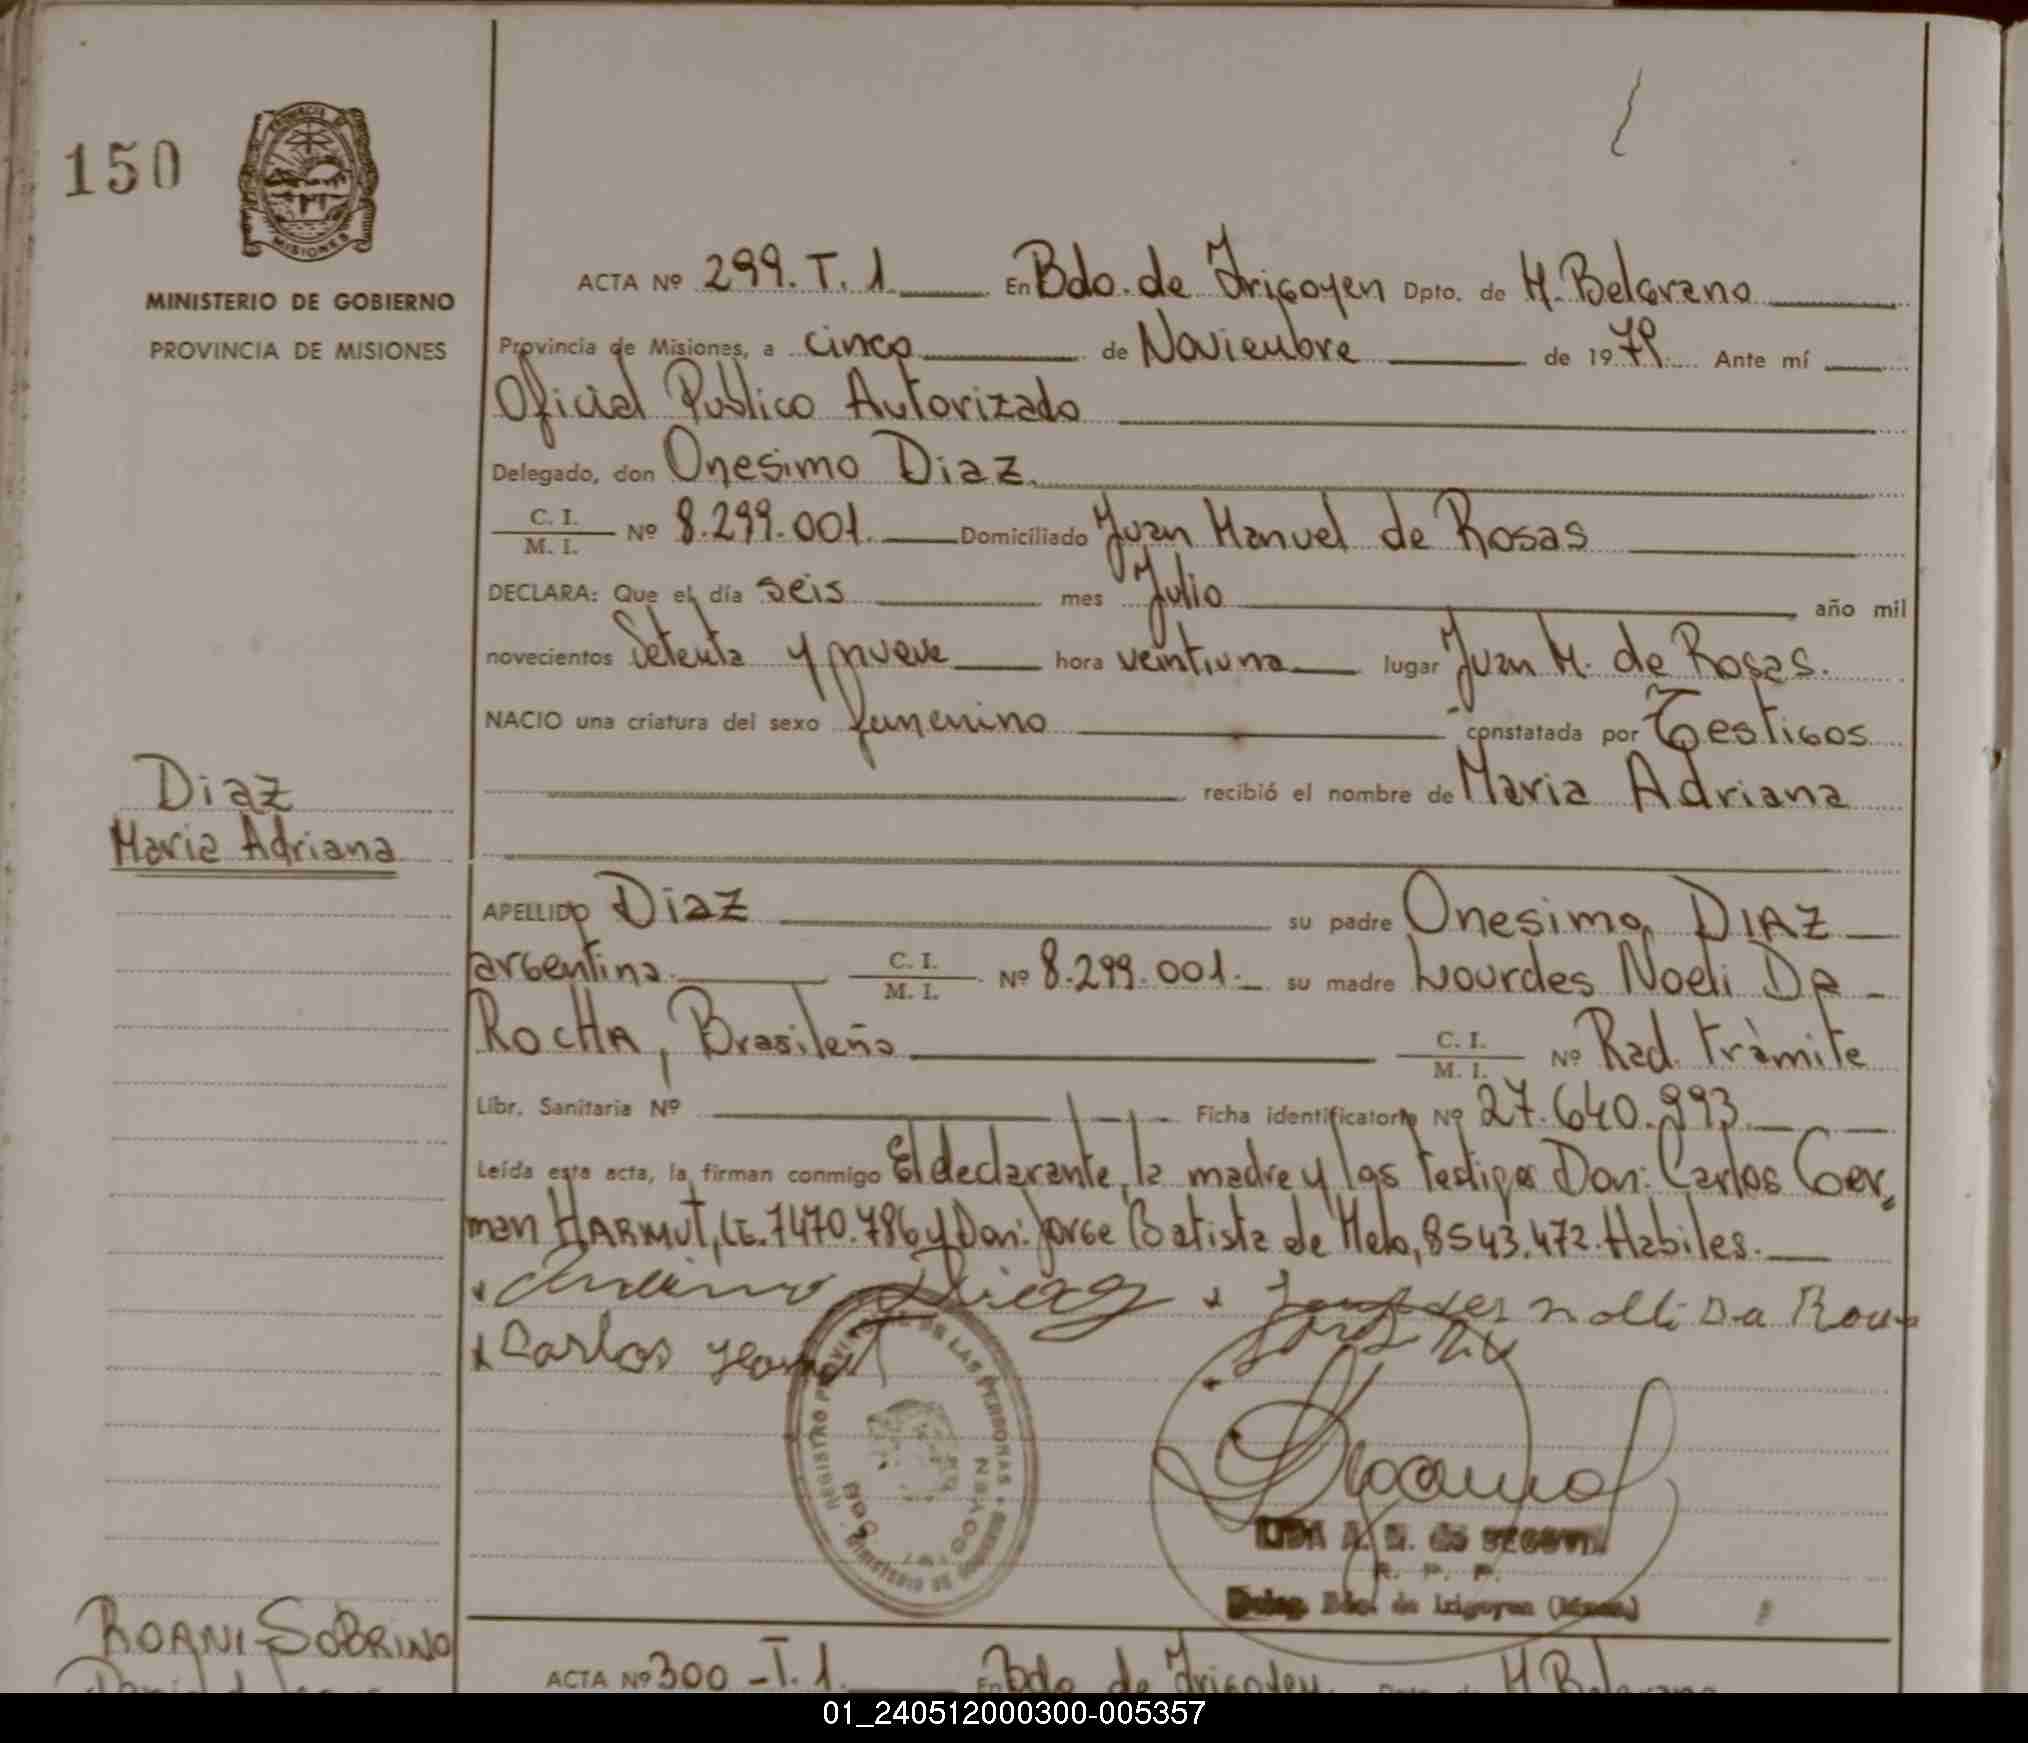 150
PROVINCIA DE
MISIONES
MINISTERIO DE GOBIERNO
PROVINCIA DE MISIONES
ACTA Nº 299. T. 1 En Bdo. de Irigoyen Dpto. de M. Belgrano
Provincia de Misiones, a cinco de Noviembre de 1979. Ante mí
Oficial Publico Autorizado
Delegado, don Onesimo Diaz.
C. I. / M. I. Nº 8.299.001. Domiciliado Juan Manuel de Rosas
DECLARA: Que el día seis mes Julio año mil
novecientos Setenta y nueve hora veintiuna lugar Juan M. de Rosas.
NACIO una criatura del sexo femenino constatada por Testigos
recibió el nombre de Maria Adriana
Diaz
Maria Adriana
APELLIDO Diaz su padre Onesimo, DIAZ
argentino. C. I. / M. I. Nº 8.299.001. su madre Lourdes Noeli DA
ROCHA, Brasileña C. I. / M. I. Nº Rad. Tràmite
Libr. Sanitaria Nº Ficha identificatoria Nº 27.640.993.
Leída esta acta, la firman conmigo El declarante, la madre y los testigos Don: Carlos Ger-
man HARMUT, LE. 7470.786 y Don: Jorge Batista de Melo, 8543.472. Habiles.
Diaz
Carlos
REGISTRO PROVINCIAL DE LAS PERSONAS
MINISTERIO DE GOBIERNO
Deleg. Bdo. de Irigoyen
ROANI SOBRINO
ACTA Nº 300 - T. 1. En Bdo de Irigoyen Dpto. de M Belgrano
01_240512000300-005357